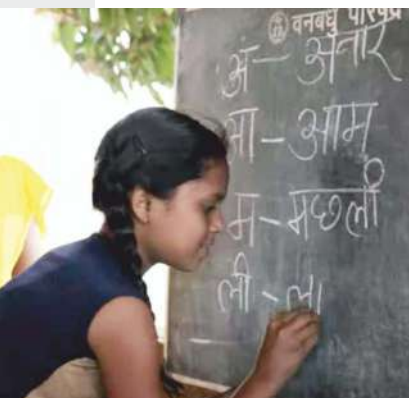 वनबंधु परिषद
अं – अनार
आ – आम
म – मछली
ली – ला